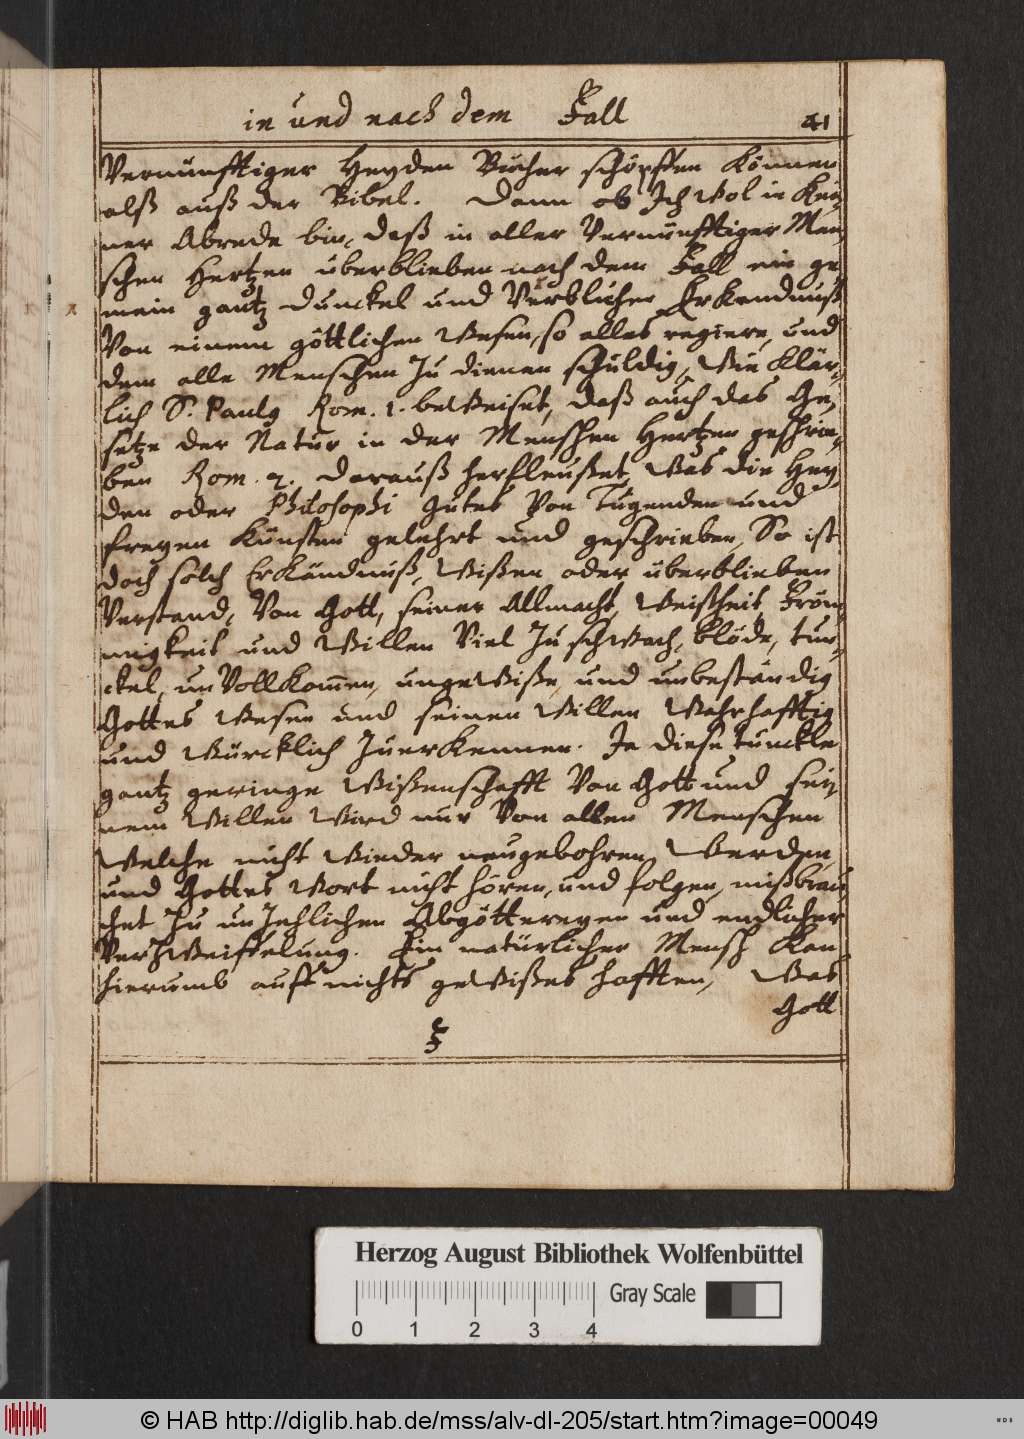 in und nach dem Fall 41
Vernünfftiger Heyden Bücher schöpffen können
alß auß der Bibel. Dann ob Ich wol in kei,
ner Abrede bin, daß in aller Vernünfftiger Men,
schen Hertzen überblieben nach dem Fall ein ge,
mein gantz dunckel und Erkendnuß
Von einem göttlichen Wesen, so alles regiere, und
dem alle Menschen zu dienen schuldig, Wie klär,
lich S. Paulg Rom. 1. beweiset, daß auch das Ge,
setze der Natur in der Menschen Hertzen geschrie,
ben Rom. 2. darauß herfleußet, was die Hey,
den oder Philosophi gutes Von Tugenden und
freyen Künsten gelehrt und geschrieben, So ist
doch solch Erkändnuß, Wißen oder überblieben
Verstand, Von Gott, seiner Allmacht, Weisheit, Fröm,
migkeit und Willen Viel zu schwach, blöde, tun,
ckel, unVollkom̄en, ungewiße, und unbeständig
Gottes Wesen und seinen Willen Wahrhafftig
und Würcklich zuerkennen. Ja diese tunckle
gantz geringe Wißenschafft Von Gott und sei,
nem Willen Wird nur Von allen Menschen
Welche nicht Wieder neugebohren Werden,
und Gottes Wort nicht hören, und folgen, mißbrau,
chet zu unzehlichen Abgöttereyen und endlicher
Verzweiffelung. Ein natürlicher Mensch kan
hierumb auff nichts gewißes hafften, Was
Gott
F
Herzog August Bibliothek Wolfenbüttel
Gray Scale
0 1 2 3 4
© HAB http://diglib.hab.de/mss/alv-dl-205/start.htm?image=00049
WDB